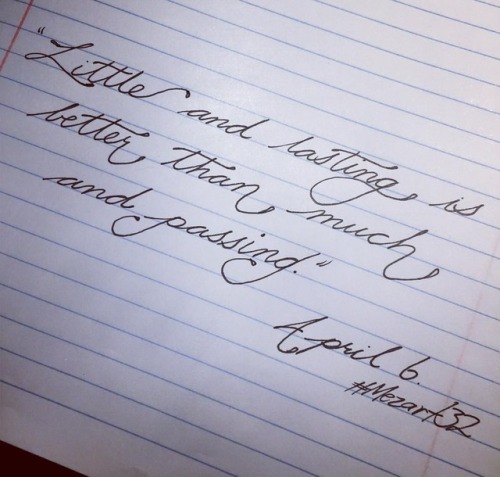 "Little and lasting is
better than much
and passing."
April 6.
#Mezart32